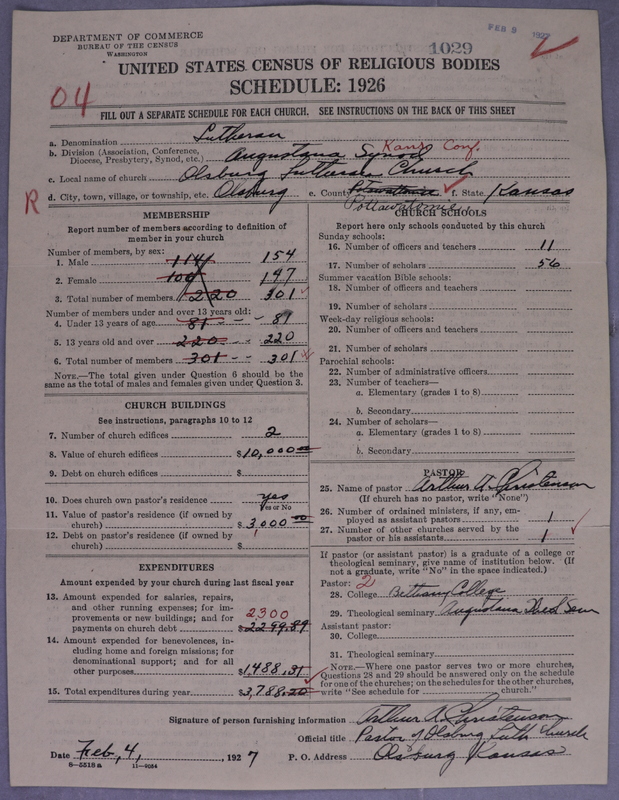 DEPARTMENT OF COMMERCE
BUREAU OF THE CENSUS
WASHINGTON
FEB 8 1927
1029
UNITED STATES CENSUS OF RELIGIOUS BODIES
SCHEDULE: 1926
04
FILL OUT A SEPARATE SCHEDULE FOR EACH CHURCH. SEE INSTRUCTIONS ON THE BACK OF THIS SHEET
a. Denomination Lutheran
b. Division (Association, Conference, Diocese, Presbytery, Synod, etc.) Augustana Synod Kans. Conf.
c. Local name of church Olsburg Lutheran Church
R
d. City, town, village, or township, etc. Olsburg e. County Pottawatomie f. State Kansas
MEMBERSHIP
Report number of members according to definition of
member in your church
Number of members, by sex:
1. Male 114 154
2. Female 106 147
3. Total number of members 220 301
Number of members under and over 13 years old:
4. Under 13 years of age 81 -- 81
5. 13 years old and over 220 -- 220
6. Total number of members 301 -- 301
NOTE.—The total given under Question 6 should be
same as the total of males and females given under Question 3.
CHURCH BUILDINGS
See instructions, paragraphs 10 to 12
7. Number of church edifices 2
8. Value of church edifices $10,000 00
9. Debt on church edifices $
10. Does church own pastor's residence yes
Yes or No
11. Value of pastor's residence (if owned by
church) $ 3,000 00
12. Debt on pastor's residence (if owned by
church) $
EXPENDITURES
Amount expended by your church during last fiscal year
13. Amount expended for salaries, repairs,
and other running expenses; for im-
provements or new buildings; and for
payments on church debt 2300 $2299.89
14. Amount expended for benevolences, in-
cluding home and foreign missions; for
denominational support; and for all
other purposes $1,488.31
15. Total expenditures during year $3,788.20
CHURCH SCHOOLS
Report here only schools conducted by this church
Sunday schools:
16. Number of officers and teachers 11
17. Number of scholars 56
Summer vacation Bible schools:
18. Number of officers and teachers
19. Number of scholars
Week-day religious schools:
20. Number of officers and teachers
21. Number of scholars
Parochial schools:
22. Number of administrative officers
23. Number of teachers—
a. Elementary (grades 1 to 8)
b. Secondary
24. Number of scholars—
a. Elementary (grades 1 to 8)
b. Secondary
PASTOR
25. Name of pastor Arthur A. Christenson
(If church has no pastor, write "None")
26. Number of ordained ministers, if any, em-
ployed as assistant pastors 1
27. Number of other churches served by the
pastor or his assistants 1
If pastor (or assistant pastor) is a graduate of a college or
theological seminary, give name of institution below. (If
not a graduate, write "No" in the space indicated.)
Pastor: 2
28. College Bethany College
29. Theological seminary Augustana Theol Sem
Assistant pastor:
30. College
31. Theological seminary
NOTE.—Where one pastor serves two or more churches,
Questions 28 and 29 should be answered only on the schedule
for one of the churches; on the schedules for the other churches,
write "See schedule for church."
Signature of person furnishing information Arthur A. Christenson
Official title Pastor of Olsburg Luth Church
Date Feb, 4, 1927 P. O. Address Olsburg Kansas
8—5518a 11—9054